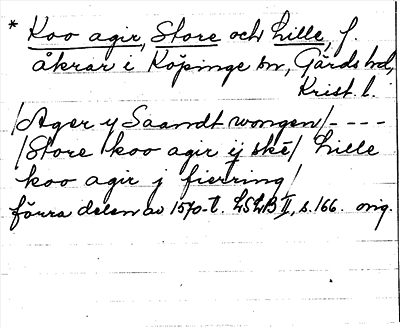 * Koo agir, Store och Lille, f.
åkrar i Köpinge sn, Gärds hd,
Krist. l.
/Ager y Saandt wongen/ - - - -
/Store koo agir ij skè/ Lille
koo agir j fierring/
förra delen av 1570-t. LSLB II, s. 166. orig.